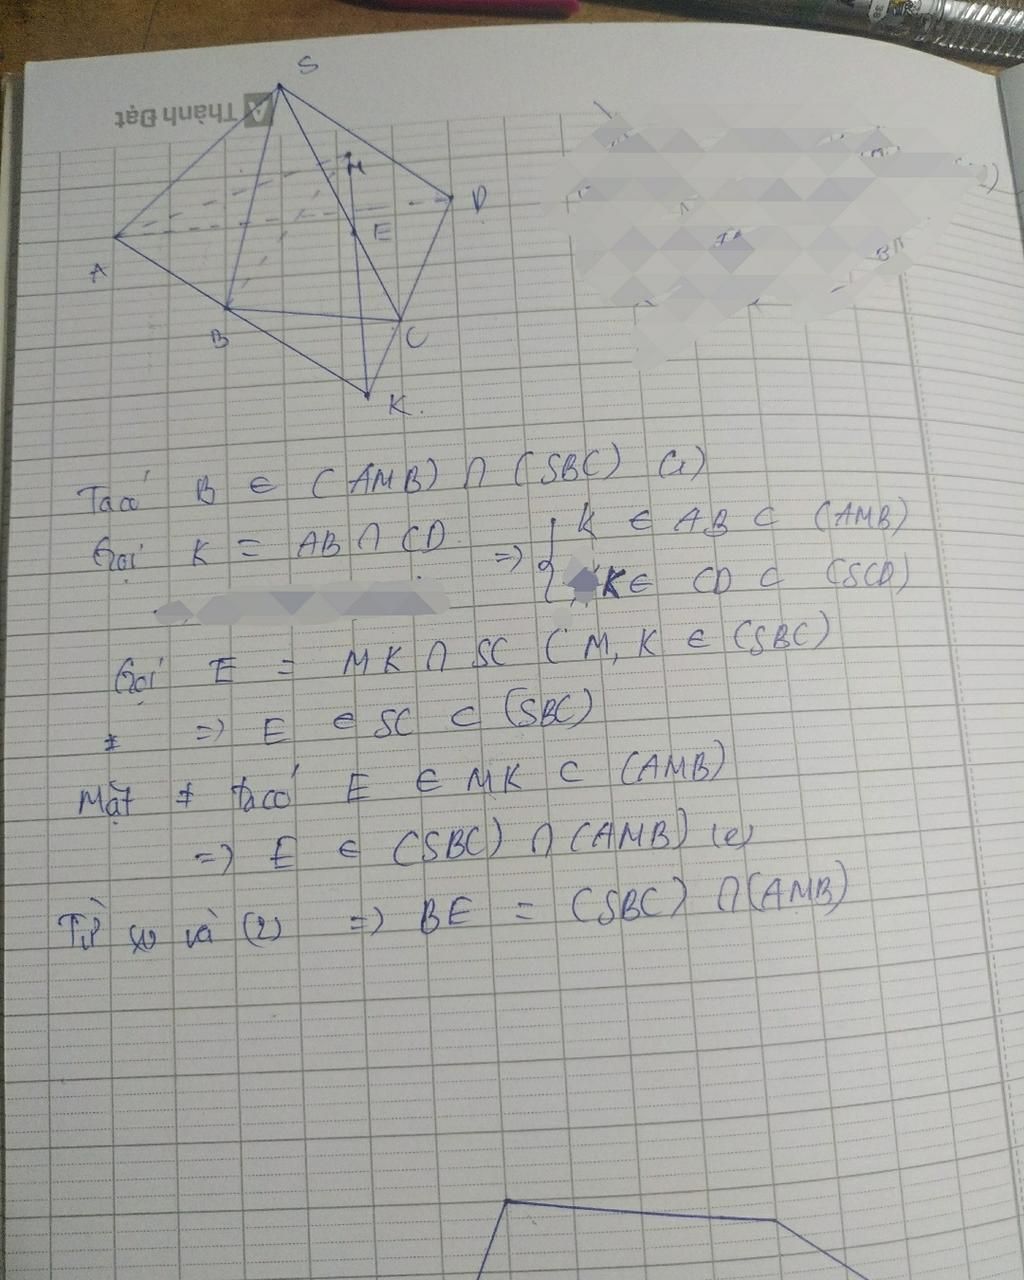 S
A Thành Đạt
M
D
E
A
B
C
K.
Ta có B ∈ (AMB) ∩ (SBC) (1)
Gọi K = AB ∩ CD. => { K ∈ AB ⊂ (AMB)
K ∈ CD ⊂ (SCD)
Gọi E = MK ∩ SC ( M, K ∈ (SBC)
=> E ∈ SC ⊂ (SBC)
Mặt ≠ ta có E ∈ MK ⊂ (AMB)
=> E ∈ (SBC) ∩ (AMB) (2)
Từ (1) và (2) => BE = (SBC) ∩ (AMB)